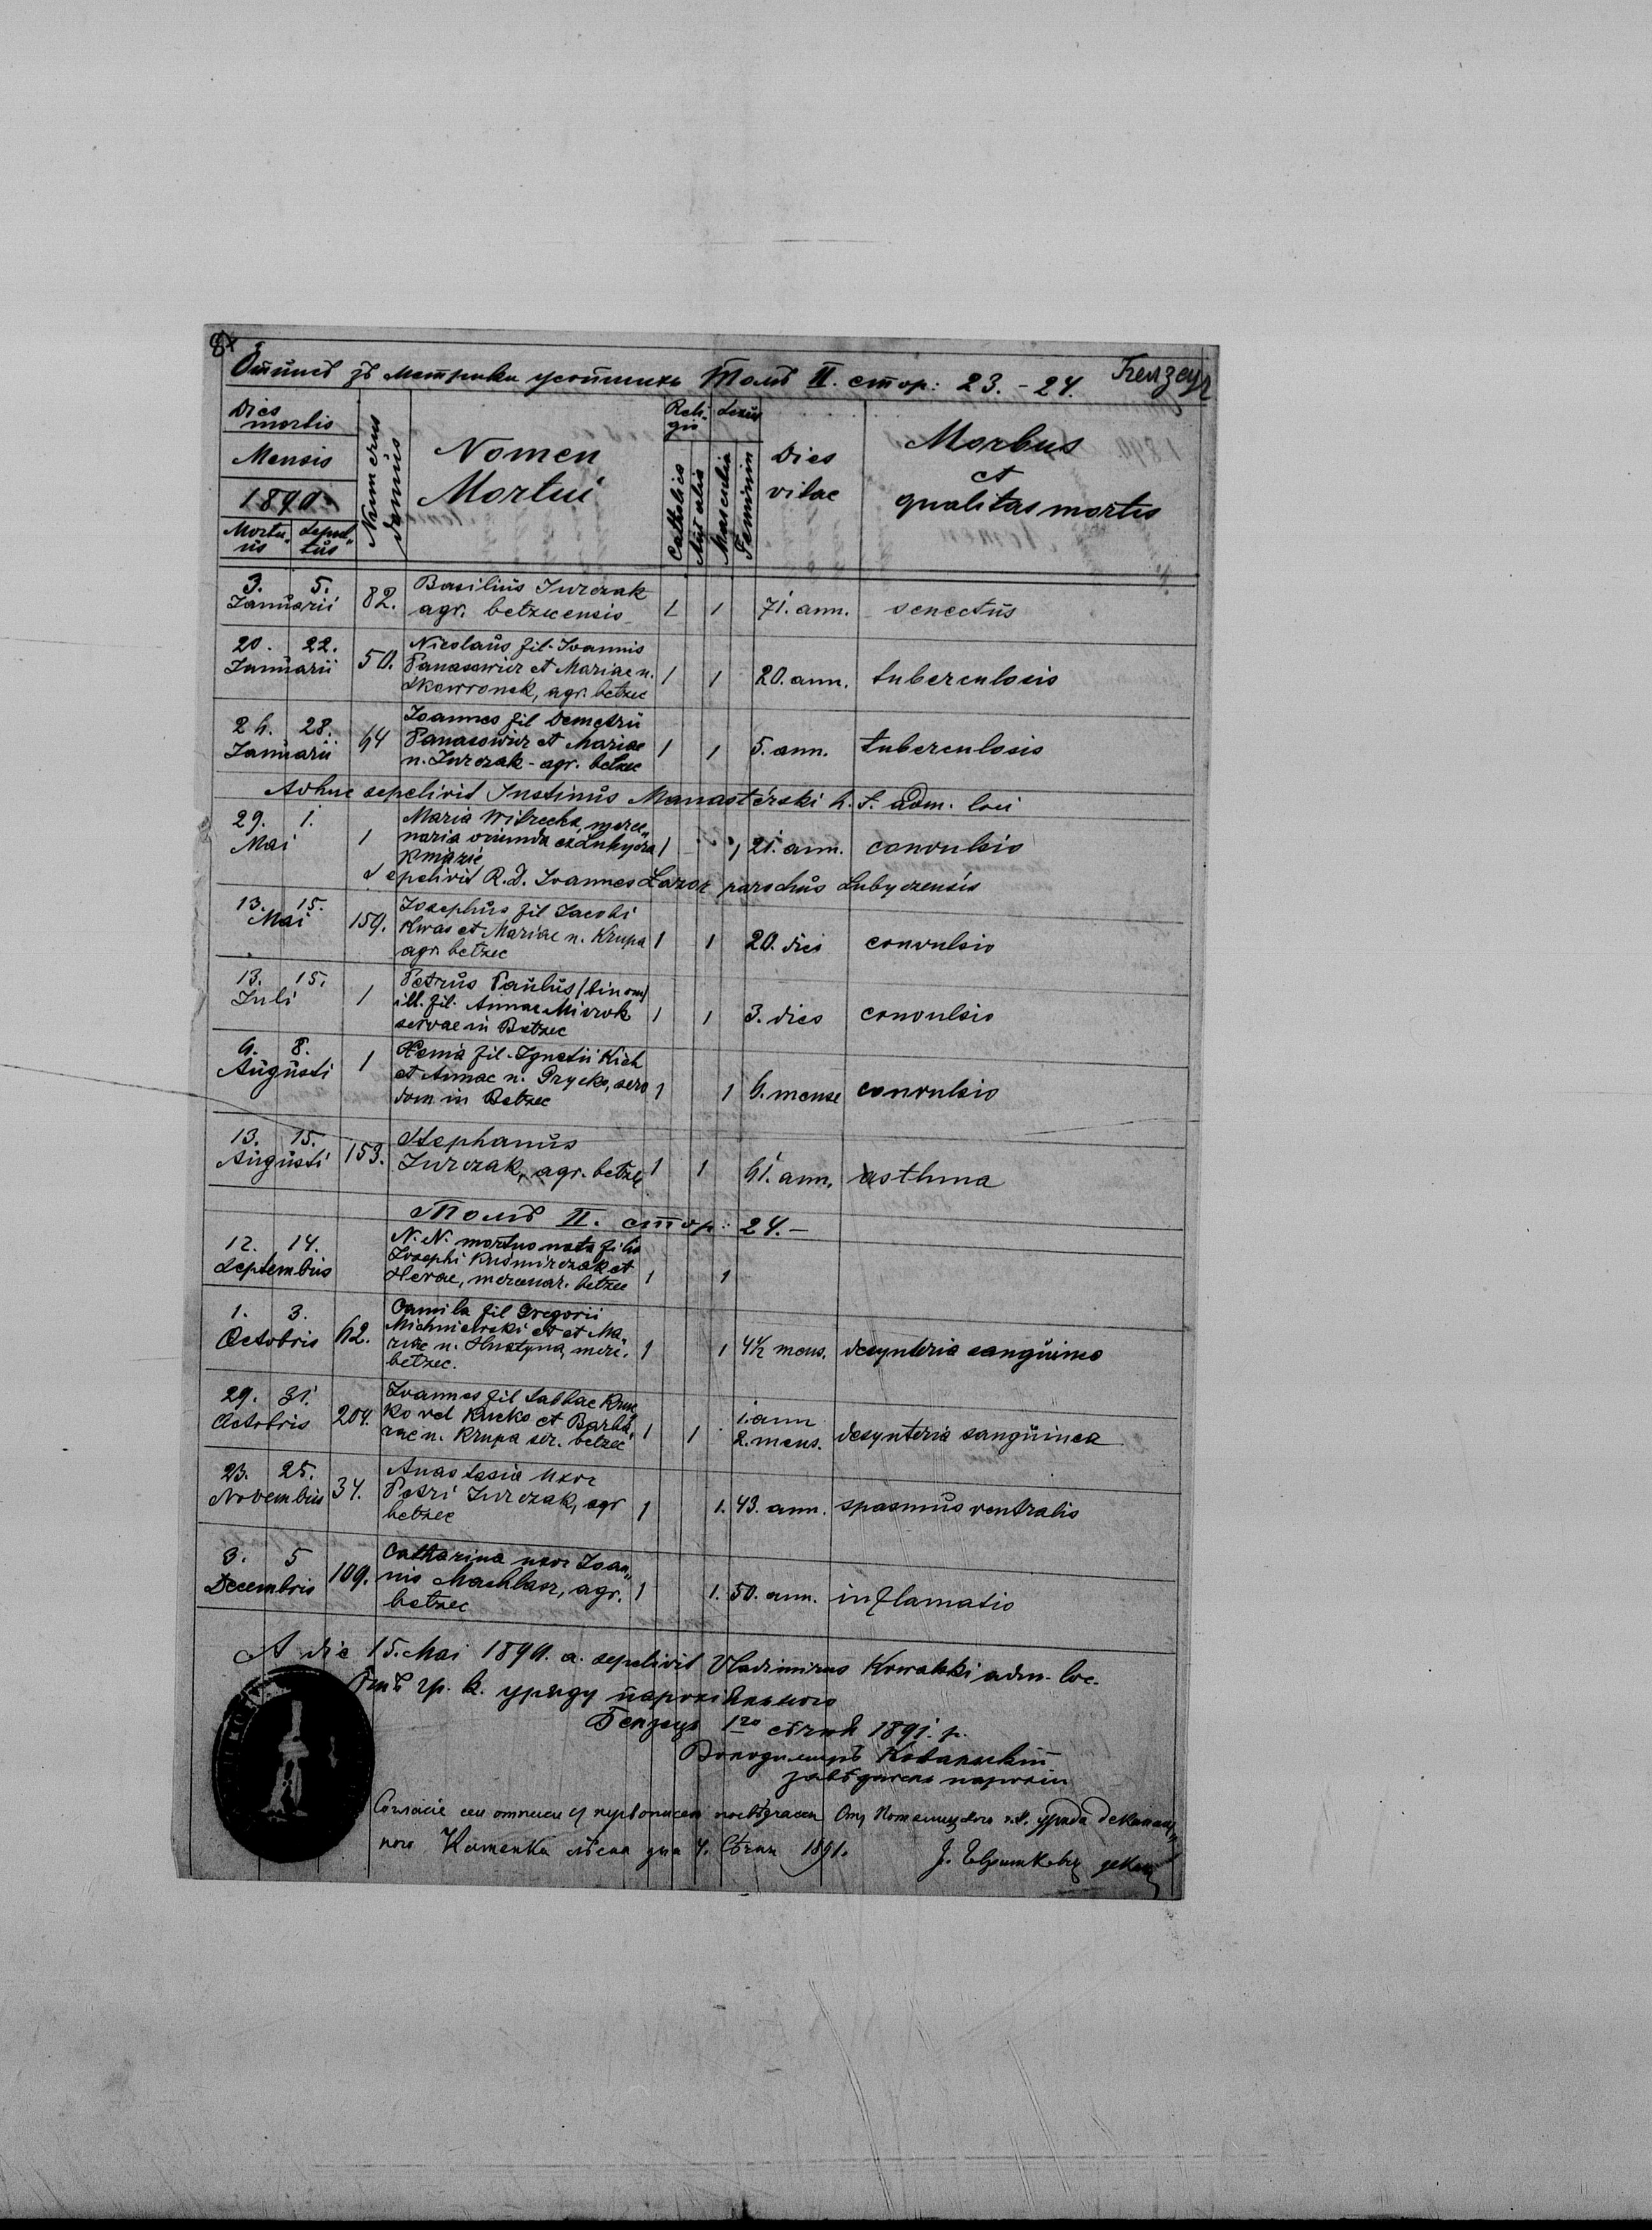 Отписъ зъ метрики усопшихъ Томъ II. стор: 23. - 24. Белзецъ
Dies mortis
Mensis
1890
Mortuus Sepultus
Numerus domus
Nomen Mortui
Religio
Catholica
Aut alia
Sexus
Masculin
Feminin
Dies vitae
Morbus
et
qualitas mortis
3. 5. Januarii 82. Basilius Jurczak
agr. betzecensis 1 1 71. ann. senectus
20. 22. Januarii 50. Nicolaus fil. Joannis
Panasowicz et Mariae n.
Skowronek, agr. betzec 1 1 20. ann. tuberculosis
26. 28. Januarii 64 Joannes fil Demetrii
Panasowicz et Mariae
n. Jurczak - agr. betzec 1 1 5. ann. tuberculosis
Adhuc sepelivit Justinus Manasterski h. t. adm. loci
29. 1. Mai 1 Maria Witrecka, merce„
naria oriunda ex Lubycza
Kniazie 1 1 21. ann. convulsio
Sepelivit R. D. Joannes Lazor parochus Lubyczensis
13. 15. Mai 159. Josephus fil Jacobi
Kwas et Mariae n. Krupa
agr. betzec 1 1 20. dies convulsio
13. 15. Juli 1 Petrus Paulus (binom)
ill. fil. Annae Mirok
servae in Betzec 1 1 3. dies convulsio
6. 8. Augusti 1 Xenia fil. Ignatii Kich
et Annae n. Prycko, serv
dom in Betzec 1 1 6. mense convulsio
13. 15. Augusti 153. Stephanus
Jurczak, agr. betzec 1 1 61. ann. asthma
Томъ II. стор: 24. -
12. 14. Septembris N. N. mortuo nata filia
Josephi Kusmirczak et
Hevae, mercenar. betzec 1 1
1. 3. Octobris 62. Camila fil Gregorii
Michniewski et et Ma„
riae n. Hnatyna, merc.
betzec. 1 1 4 1/2 mens. desynteria sanguinea
29. 31. Octobris 204. Joannes fil Sabbae Kruc
ko vel Kucko et Barba„
rae n. Krupa ser. betzec 1 1 1. ann
2. mens. desynteria sanguinea
23. 25. Novembris 34. Anastasia uxor
Petri Jurczak, agr
betzec 1 1. 43. ann. spasmus ventralis
3. 5 Decembris 109. Catharina uxor Joan„
nis Machlarz, agr.
betzec 1 1. 50. ann. inflamatio
A die 15. Mai 1890. a. sepelivit Vladimirus Kowalski adm. loc.
Отъ гр. к. уряду парохіяльного
Белзецъ 1го Сѣчня 1891. р.
Володимиръ Ковальскій
завѣдатель парохіи
Согласіе сеи отписи съ первописею посвѣдчаеся Отъ гр. к. уряда деканаль„
ного Каменка лѣсна дня 4. Сѣчня 1891.
декан